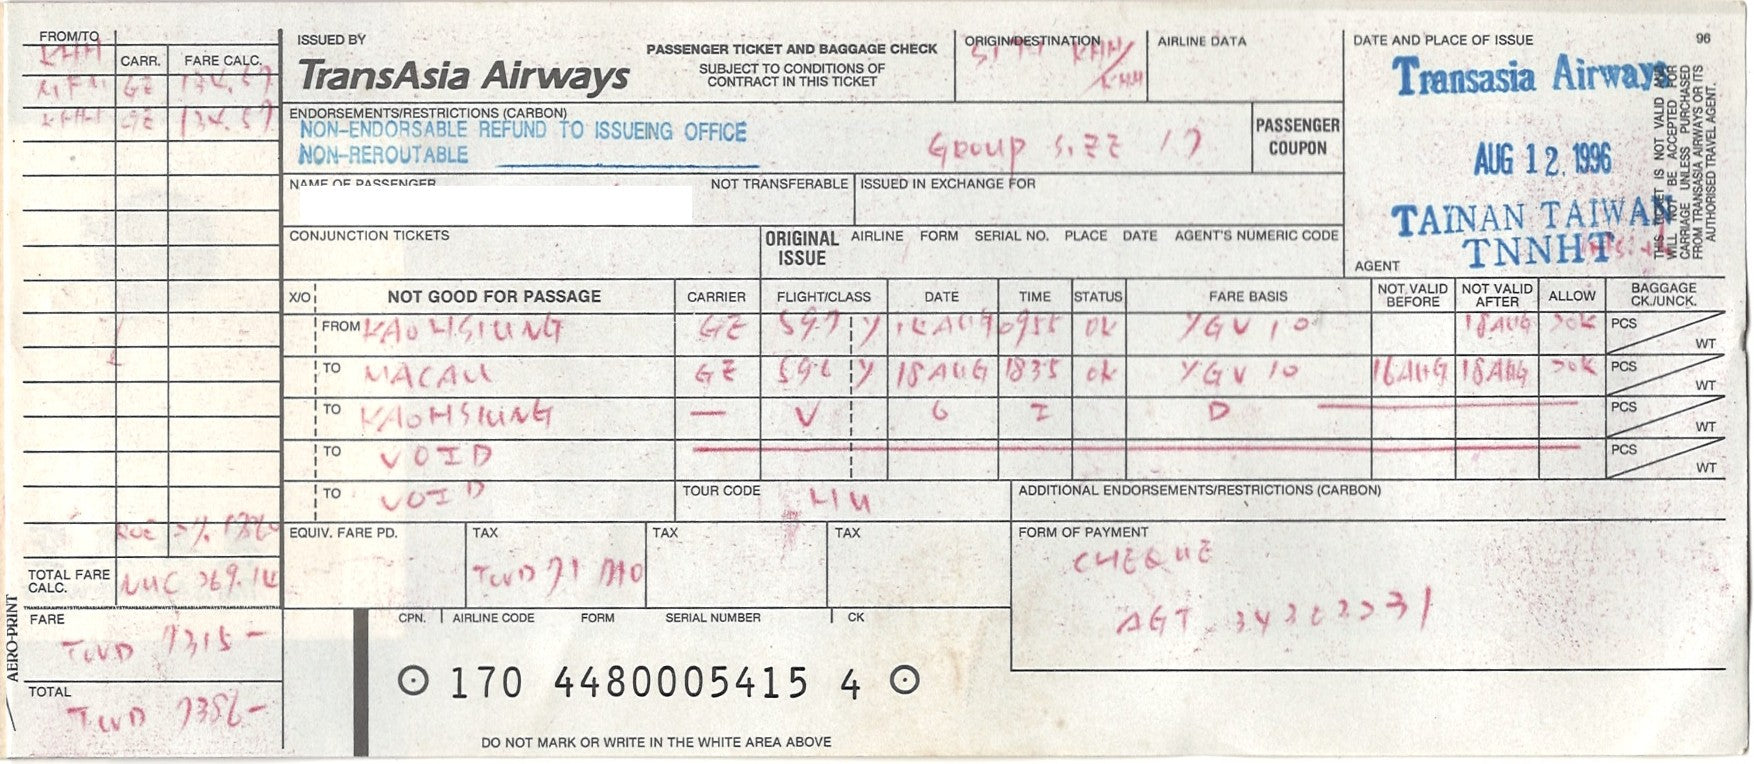 FROM/TO
KHH
CARR.
FARE CALC.
MFM GE 134.57
KHH GE 134.57
ISSUED BY
TransAsia Airways
PASSENGER TICKET AND BAGGAGE CHECK
SUBJECT TO CONDITIONS OF
CONTRACT IN THIS TICKET
ORIGIN/DESTINATION
KHH/
KHH
AIRLINE DATA
DATE AND PLACE OF ISSUE
96
Transasia Airways
AUG 12. 1996
TAINAN TAIWAN
TNNHT
AGENT
THIS TICKET IS NOT VALID AND
WILL NOT BE ACCEPTED FOR
CARRIAGE UNLESS PURCHASED
FROM TRANSASIA AIRWAYS OR ITS
AUTHORISED TRAVEL AGENT.
ENDORSEMENTS/RESTRICTIONS (CARBON)
NON-ENDORSABLE REFUND TO ISSUEING OFFICE
NON-REROUTABLE
GROUP SIZE 17
PASSENGER
COUPON
NAME OF PASSENGER
NOT TRANSFERABLE
ISSUED IN EXCHANGE FOR
CONJUNCTION TICKETS
ORIGINAL
ISSUE
AIRLINE FORM SERIAL NO. PLACE DATE AGENT'S NUMERIC CODE
X/O NOT GOOD FOR PASSAGE CARRIER FLIGHT/CLASS DATE TIME STATUS FARE BASIS NOT VALID BEFORE NOT VALID AFTER ALLOW BAGGAGE CK./UNCK.
FROM KAOHSIUNG GE 597 Y AUG 0955 OK YGV10 18AUG PCS WT
TO MACAU GE 596 Y 18AUG 1835 OK YGV10 16AUG 18AUG PCS WT
TO KAOHSIUNG — V O I D PCS WT
TO VOID PCS WT
TO VOID
TOUR CODE
ADDITIONAL ENDORSEMENTS/RESTRICTIONS (CARBON)
EQUIV. FARE PD.
TAX
TWD 71
TAX
TAX
FORM OF PAYMENT
CHEQUE
AGT
TOTAL FARE
CALC.
NUC 269.14
FARE
TWD 7315-
TOTAL
TWD 7386-
AERO-PRINT
CPN. AIRLINE CODE FORM SERIAL NUMBER CK
170 4480005415 4
DO NOT MARK OR WRITE IN THE WHITE AREA ABOVE